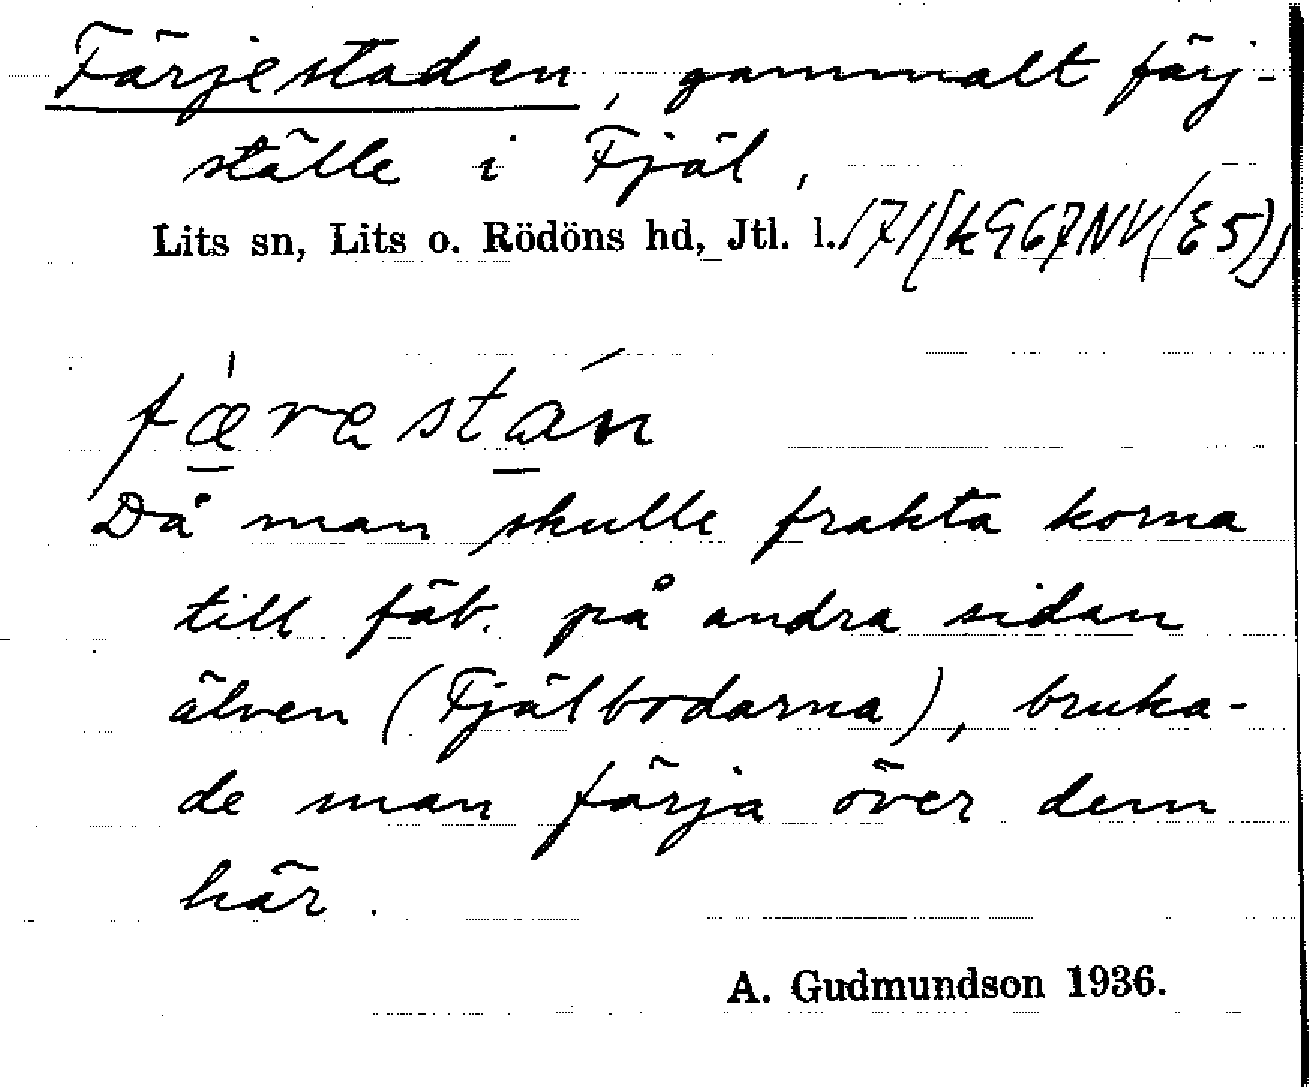 Färjestaden, gammalt färj-
ställe i Fjäl,
Lits sn, Lits o. Rödöns hd, Jtl. l.
færestán
Då man skulle frakta korna
till fäb. på andra sidan
älven (Fjälbodarna), bruka-
de man färja över dem
här.
A. Gudmundson 1936.